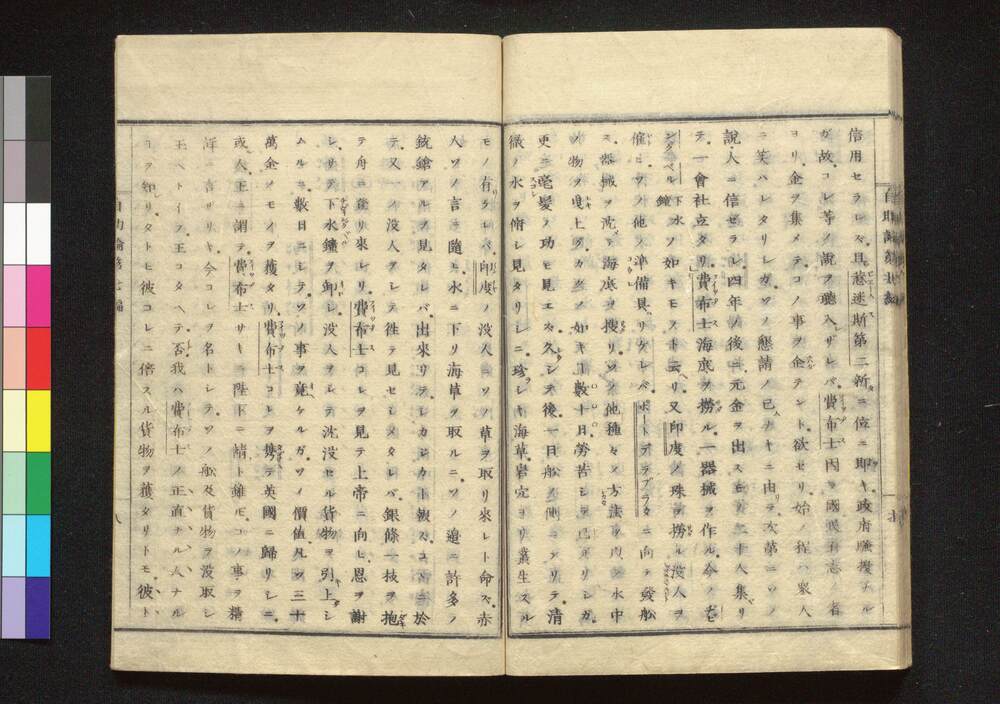 信用セラレズ。且惹迷斯第二新ニ位ニ即キ。政府騷擾ナル
ガ故。コレ等ノ説ヲ聽入ザレバ費布士因テ國民有志ノ者
ヨリ。金ヲ集メテコノ事ヲ企テント欲セリ。始ノ程ハ衆人
ニ笑ハレタリシガ。ソノ懇請ノ已ムナキニ由リ。次第ニソノ
説。人ニ信ゼラレ。四年ノ後ニ。元金ヲ出スモノ。二十人集リ
テ。一會社立タリ。費布士海底ヲ撈ル。一器械ヲ作ル。今ノ
下水鐘ノ如キモストニ云リ。又印度ノ珠ヲ撈ル沒人ヲ
催シ。ソノ他ノ準備具リケレバ。ポートデラプラタニ向テ發船
ス。器械ヲ沈テ海底ヲ搜リ。ソノ他種々ノ方法ヲ以テ水中
ノ物ヲ曳上グ。カクノ如キコト數十日。勞苦シテ已ザリシガ。
更ニ毫髮ノ功モ見エズ。久シテ後。一日船ノ側ニアリテ清
徹ノ水ヲ俯シ見タリシニ。珍シキ海草。岩穴ヨリ叢生スル
モノ有ケレバ。印度ノ沒人ニ。ソノ草ヲ取リ來レト命ズ。赤
人ソノ言ニ隨ヒ。水ニ下リ海草ヲ取ルニ。ソノ邊ニ許多ノ
銃鎗アルヲ見タレバ。出來リテ。シカシカト報ズ。コヽニ於
テ又一ノ沒人ヲシテ往テ見セシメタレバ。銀條一枝ヲ抱
テ舟ニ登リ來レリ。費布士コレヲ見テ上帝ニ向ヒ恩ヲ謝
シ。リテ下水鐘ヲ卸シ。沒人ヲシテ沈沒セル貨物ヲ引上シ
ムルニ。數日ニシテ。ソノ事ヲ竟ケルガ。ソノ價値凡ソ三十
萬金ノモノヲ獲タリ。費布士コレヲ携テ英國ニ歸リシニ。
或人王ニ謂テ。費布士サキニ陛下ニ請ト雖モ。コノ事ヲ精
詳ニ言ザリキ。今コレヲ名トシテ。ソノ船及貨物ヲ沒取シ
玉ヘトイフ。王コタヘテ。否。我ハ費布士ノ正直ナル人ナル
コヲ知リ。タトヒ彼コレニ倍スル貨物ヲ獲タリトモ。彼ト